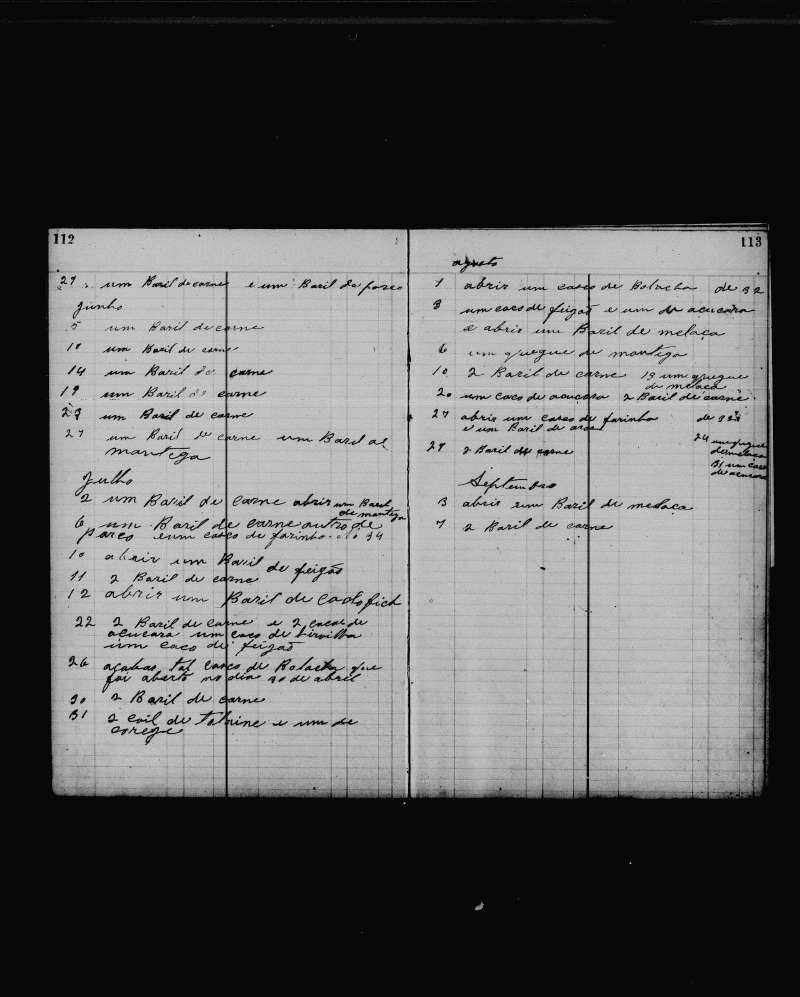 112
27 um Baril de carne e um Baril de porco
Junho
5 um Baril de carne
10 um Baril de carne
14 um Baril de carne
19 um Baril de carne
23 um Baril de carne
27 um Baril de carne um Baril de
mantega
Julho
2 um Baril de carne abrir um Baril
de mantega
6 um Baril de carne outro de
porco e um casco de farinha No 34
10 abrir um Baril de feigão
11 2 Baril de carne
12 abrir um Baril de codofich
22 2 Baril de carne e 2 cacos de
acucara um caco de
um caco de feigão
26 acabou tal casco de Bolacha que
foi aberto no dia 30 de abril
30 2 Baril de carne
31 2 coil de e um de
113
agusto
1 abrir um casco de Bolacha de 32
3 um caco de feigão e um de acucara
e abrio um Baril de melaça
6 um quegue de mantega
10 2 Baril de carne 13 um quegue
de melaca
20 um caco de acucara 2 Baril de carne
27 abrir um casco de farinha
e um Baril de aros
24 um quegue
de melaca
29 2 Baril de carne
31 um caco
de acucara
Septembro
3 abrir um Baril de melaça
7 2 Baril de carne